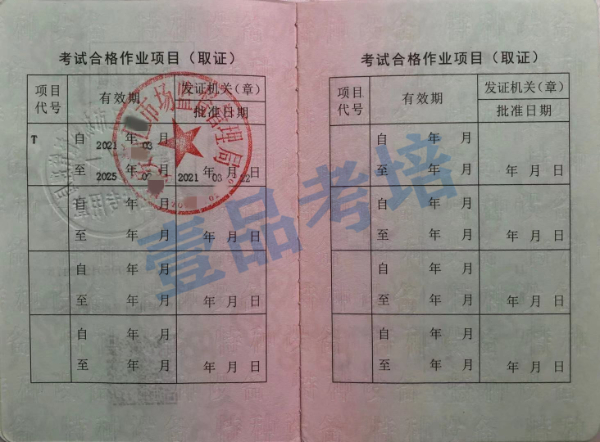 考试合格作业项目（取证）
项目代号 有效期 发证机关（章）
批准日期
T 自 2021 年 03 月
至 2025 年 月 2021 年 03 月 22 日
自 年 月
至 年 月 年 月 日
自 年 月
至 年 月 年 月 日
自 年 月
至 年 月 年 月 日
市场监督管理局
考试合格作业项目（取证）
项目代号 有效期 发证机关（章）
批准日期
自 年 月
至 年 月 年 月 日
自 年 月
至 年 月 年 月 日
自 年 月
至 年 月 年 月 日
自 年 月
至 年 月 年 月 日
壹品考培